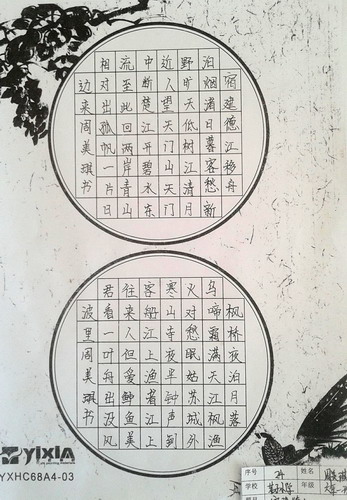 宿建德江移舟
泊烟渚日暮客愁新
野旷天低树江清月
近人望天门山天门
中断楚江开碧水东
流至此回两岸青山
相对出孤帆一片日
边来周美琪书
枫桥夜泊月落
乌啼霜满天江枫渔
火对愁眠姑苏城外
寒山寺夜半钟声到
客船江上渔者江上
往来人但爱鲈鱼美
君看一叶舟出没风
波里周美琪书
yixin
YXHC68A4-03
序号 姓名
学校 年级